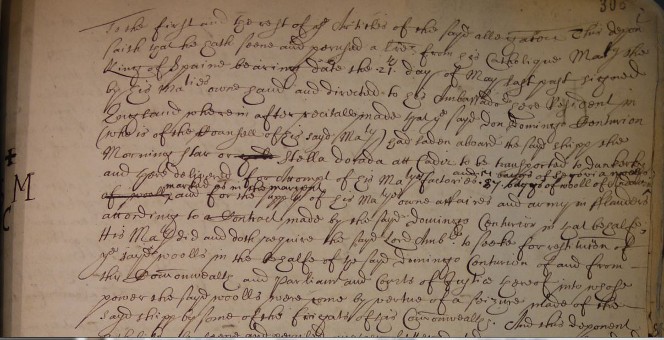 306
To the first and the rest of ye Articles of the sayd allegation This depont
saith that hee hath seene and perused a lre from his Catholique Maty the
King of Spaine bearing date the 21th day of May last past signed
by his Maties owne hand and directed to his Ambassador here resident in
England wherein after recitall made that ye sayd Don Domingo Centurion
(who is of the Counsell of his sayd Maty) had laden aboard the sayd shipp the
Morning star or Stella dorada att Cadiz to be transported to Dunkerke
and there delivered for Accompt of his Maties factories 87 baggs of wooll of
marked as in the margent and for the supply of his Maties owne affaires and army in Flanders
M
C
according to a Contract made by the sayd Domingo Centurion in that behalfe,
His Maty did and doth require the sayd Lord Ambr to seeke for restitucon of
ye sayd woolls in the behalfe of ye sayd Domingo Centurion of and from
this Commonwealth and Parliamt and Courts of Justice thereof into whose
power the sayd woolls were come by vertue of a seizure made of the
sayd shipp by some of the frigats of this Commonwealth. And this deponent